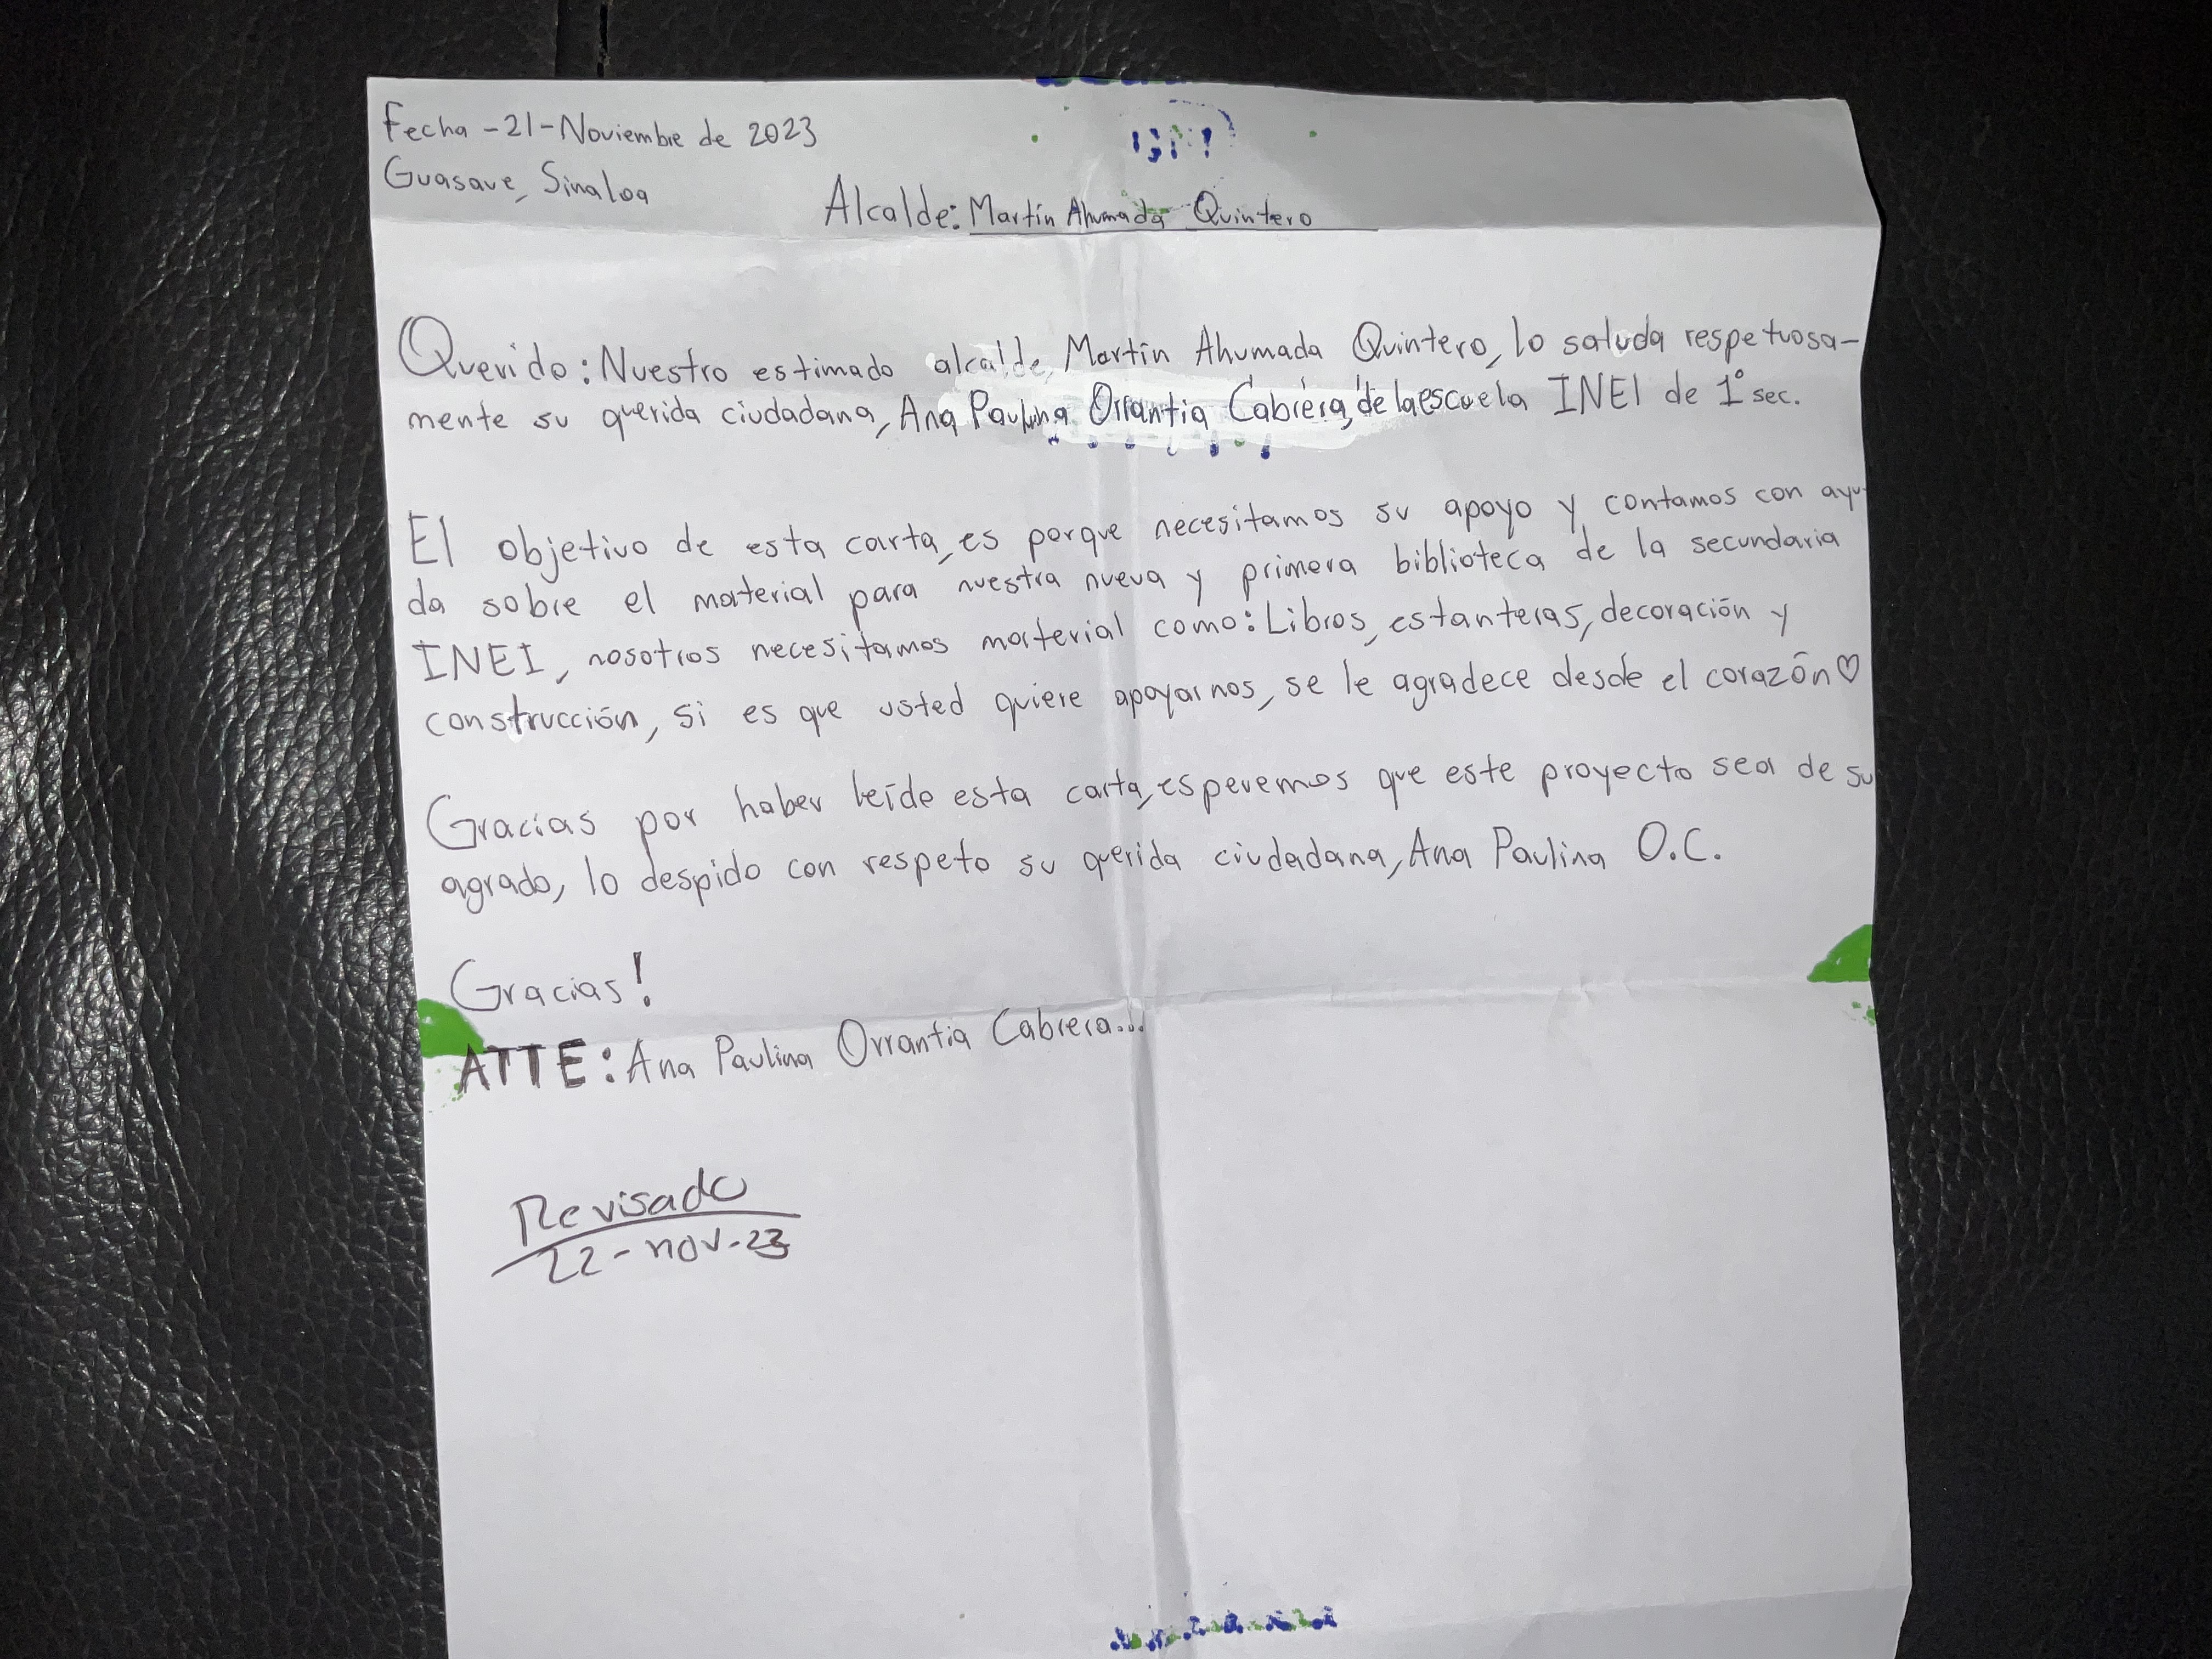 Fecha -21-Noviembre de 2023
Guasave, Sinaloa
Alcalde: Martín Ahumada Quintero
Querido: Nuestro estimado alcalde, Martín Ahumada Quintero, lo saluda respetuosa-
mente su querida ciudadana, Ana Paulina Orrantia Cabrera, de la escuela INEI de 1° sec.
El objetivo de esta carta, es porque necesitamos su apoyo y contamos con ayu-
da sobre el material para nuestra nueva y primera biblioteca de la secundaria
INEI, nosotros necesitamos material como: Libros, estanteras, decoración y
construcción, si es que usted quiere apoyarnos, se le agradece desde el corazón ♡
Gracias por haber leído esta carta, esperemos que este proyecto sea de su
agrado, lo despido con respeto su querida ciudadana, Ana Paulina O.C.
Gracias!
ATTE: Ana Paulina Orrantia Cabrera...
Revisado
22-nov-23